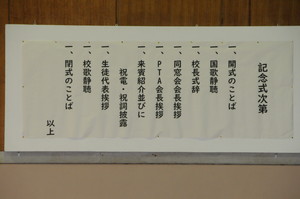 記念式次第
一、開式のことば
一、国歌静聴
一、校長式辞
一、同窓会会長挨拶
一、ＰＴＡ会長挨拶
一、来賓紹介並びに
祝電・祝詞披露
一、生徒代表挨拶
一、校歌静聴
一、閉式のことば
以上